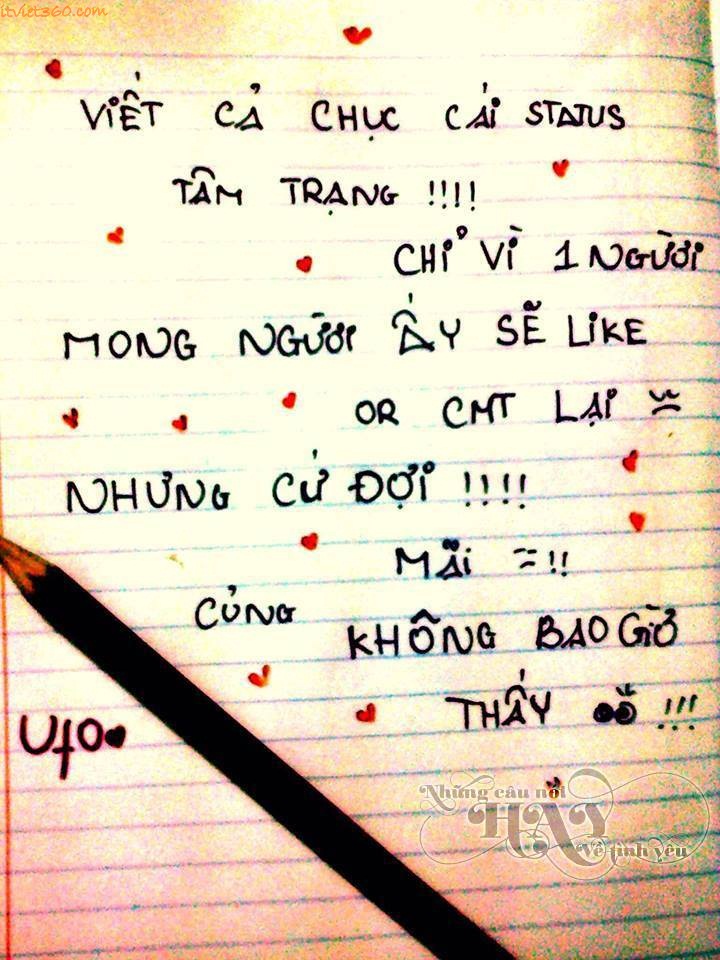 itviet360.com
VIẾT CẢ CHỤC CÁI STATUS
TÂM TRẠNG !!!!
CHỈ VÌ 1 NGƯỜI
MONG NGƯỜI ẤY SẼ LIKE
OR CMT LẠI
NHƯNG CỨ ĐỢI !!!!
MÃI =!!
CỦNG
KHÔNG BAO GIỜ
THẤY !!!
UFO
Những câu nói
HAY
Về tình yêu